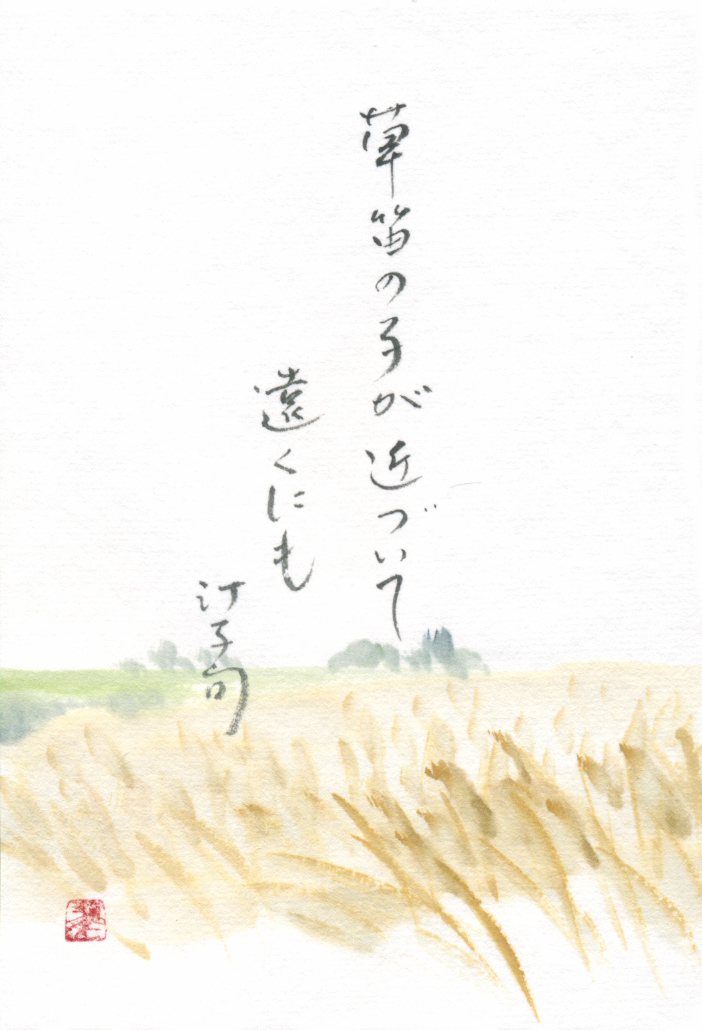 草笛の子が近づいて
遠くにも
汀子句